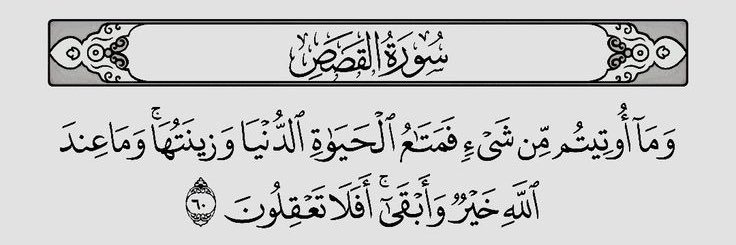 سُورَةُ القَصَصِ
وَمَآ أُوتِيتُم مِّن شَىْءٍ فَمَتَـٰعُ ٱلْحَيَوٰةِ ٱلدُّنْيَا وَزِينَتُهَا ۚ وَمَا عِندَ
ٱللَّهِ خَيْرٌ وَأَبْقَىٰٓ ۚ أَفَلَا تَعْقِلُونَ ٦٠